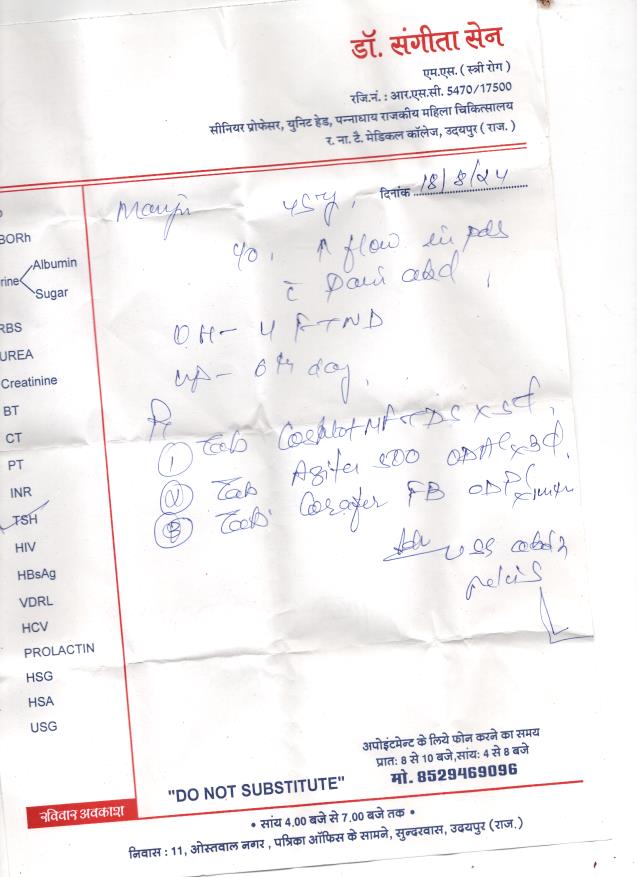 डॉ. संगीता सेन
एम.एस. ( स्त्री रोग )
रजि.नं. : आर.एस.सी. 5470/17500
सीनियर प्रोफेसर, युनिट हेड, पन्नाधाय राजकीय महिला चिकित्सालय
र. ना. टै. मेडिकल कॉलेज, उदयपुर ( राज. )
दिनांक 18/8/24
BORh
rine Albumin
Sugar
RBS
UREA
Creatinine
BT
CT
PT
INR
TSH
HIV
HBsAg
VDRL
HCV
PROLACTIN
HSG
HSA
USG
45y,
c/o, ↑ flow in pds
c̄ Pain abd,
OH- 4 FTND
day,
Rx
① Tab TDS x 5d,
② Tab 500 OD x 3d,
③ Tab FB OD
Adv USG abd
pelvis
अपोइंटमेन्ट के लिये फोन करने का समय
प्रात: 8 से 10 बजे,सांय: 4 से 8 बजे
मो. 8529469096
"DO NOT SUBSTITUTE"
रविवार अवकाश
• सांय 4.00 बजे से 7.00 बजे तक •
निवास : 11, ओस्तवाल नगर , पत्रिका ऑफिस के सामने, सुन्दरवास, उदयपुर (राज.)